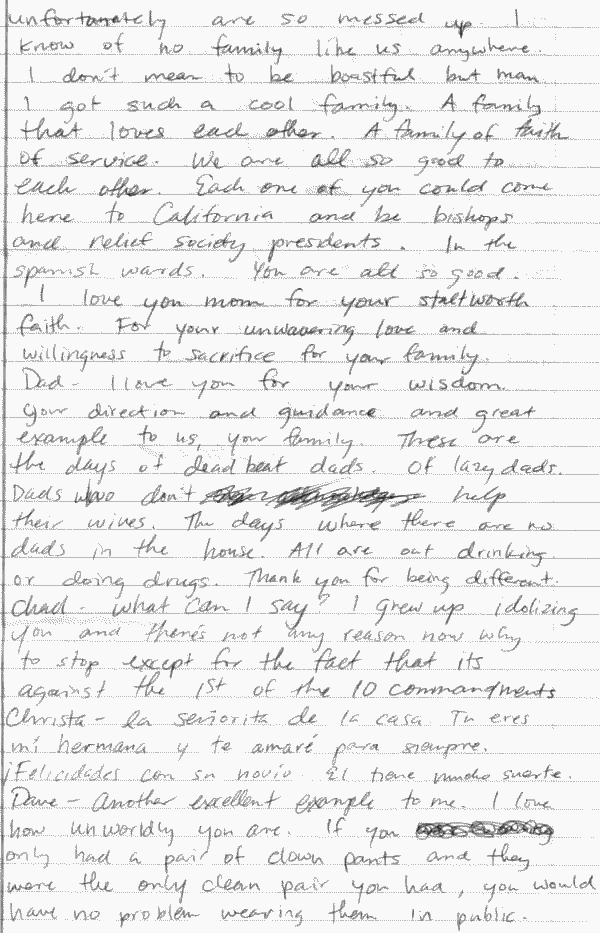 unfortunately are so messed up. I
know of no family like us anywhere.
I don't mean to be boastful but man
I got such a cool family. A family
that loves each other. A family of faith
of service. We are all so good to
each other. Each one of you could come
here to California and be bishops
and relief society presidents. In the
spanish wards. You are all so good.
I love you mom for your staltworth
faith. For your unwavering love and
willingness to sacrifice for your family.
Dad- I love you for your wisdom.
Your direction and guidance and great
example to us, your family. These are
the days of dead beat dads. Of lazy dads.
Dads who don't help
their wives. The days where there are no
dads in the house. All are out drinking
or doing drugs. Thank you for being different.
Chad- what can I say? I grew up idolizing
you and there's not any reason now why
to stop except for the fact that its
against the 1st of the 10 commandments
Christa- la señorita de la casa. Tu eres
mi hermana y te amaré para siempre.
¡Felicidades con su novio. El tiene mucho suerte.
Dave- Another excellent example to me. I love
how unworldly you are. If you
only had a pair of clown pants and they
were the only clean pair you had, you would
have no problem wearing them in public.